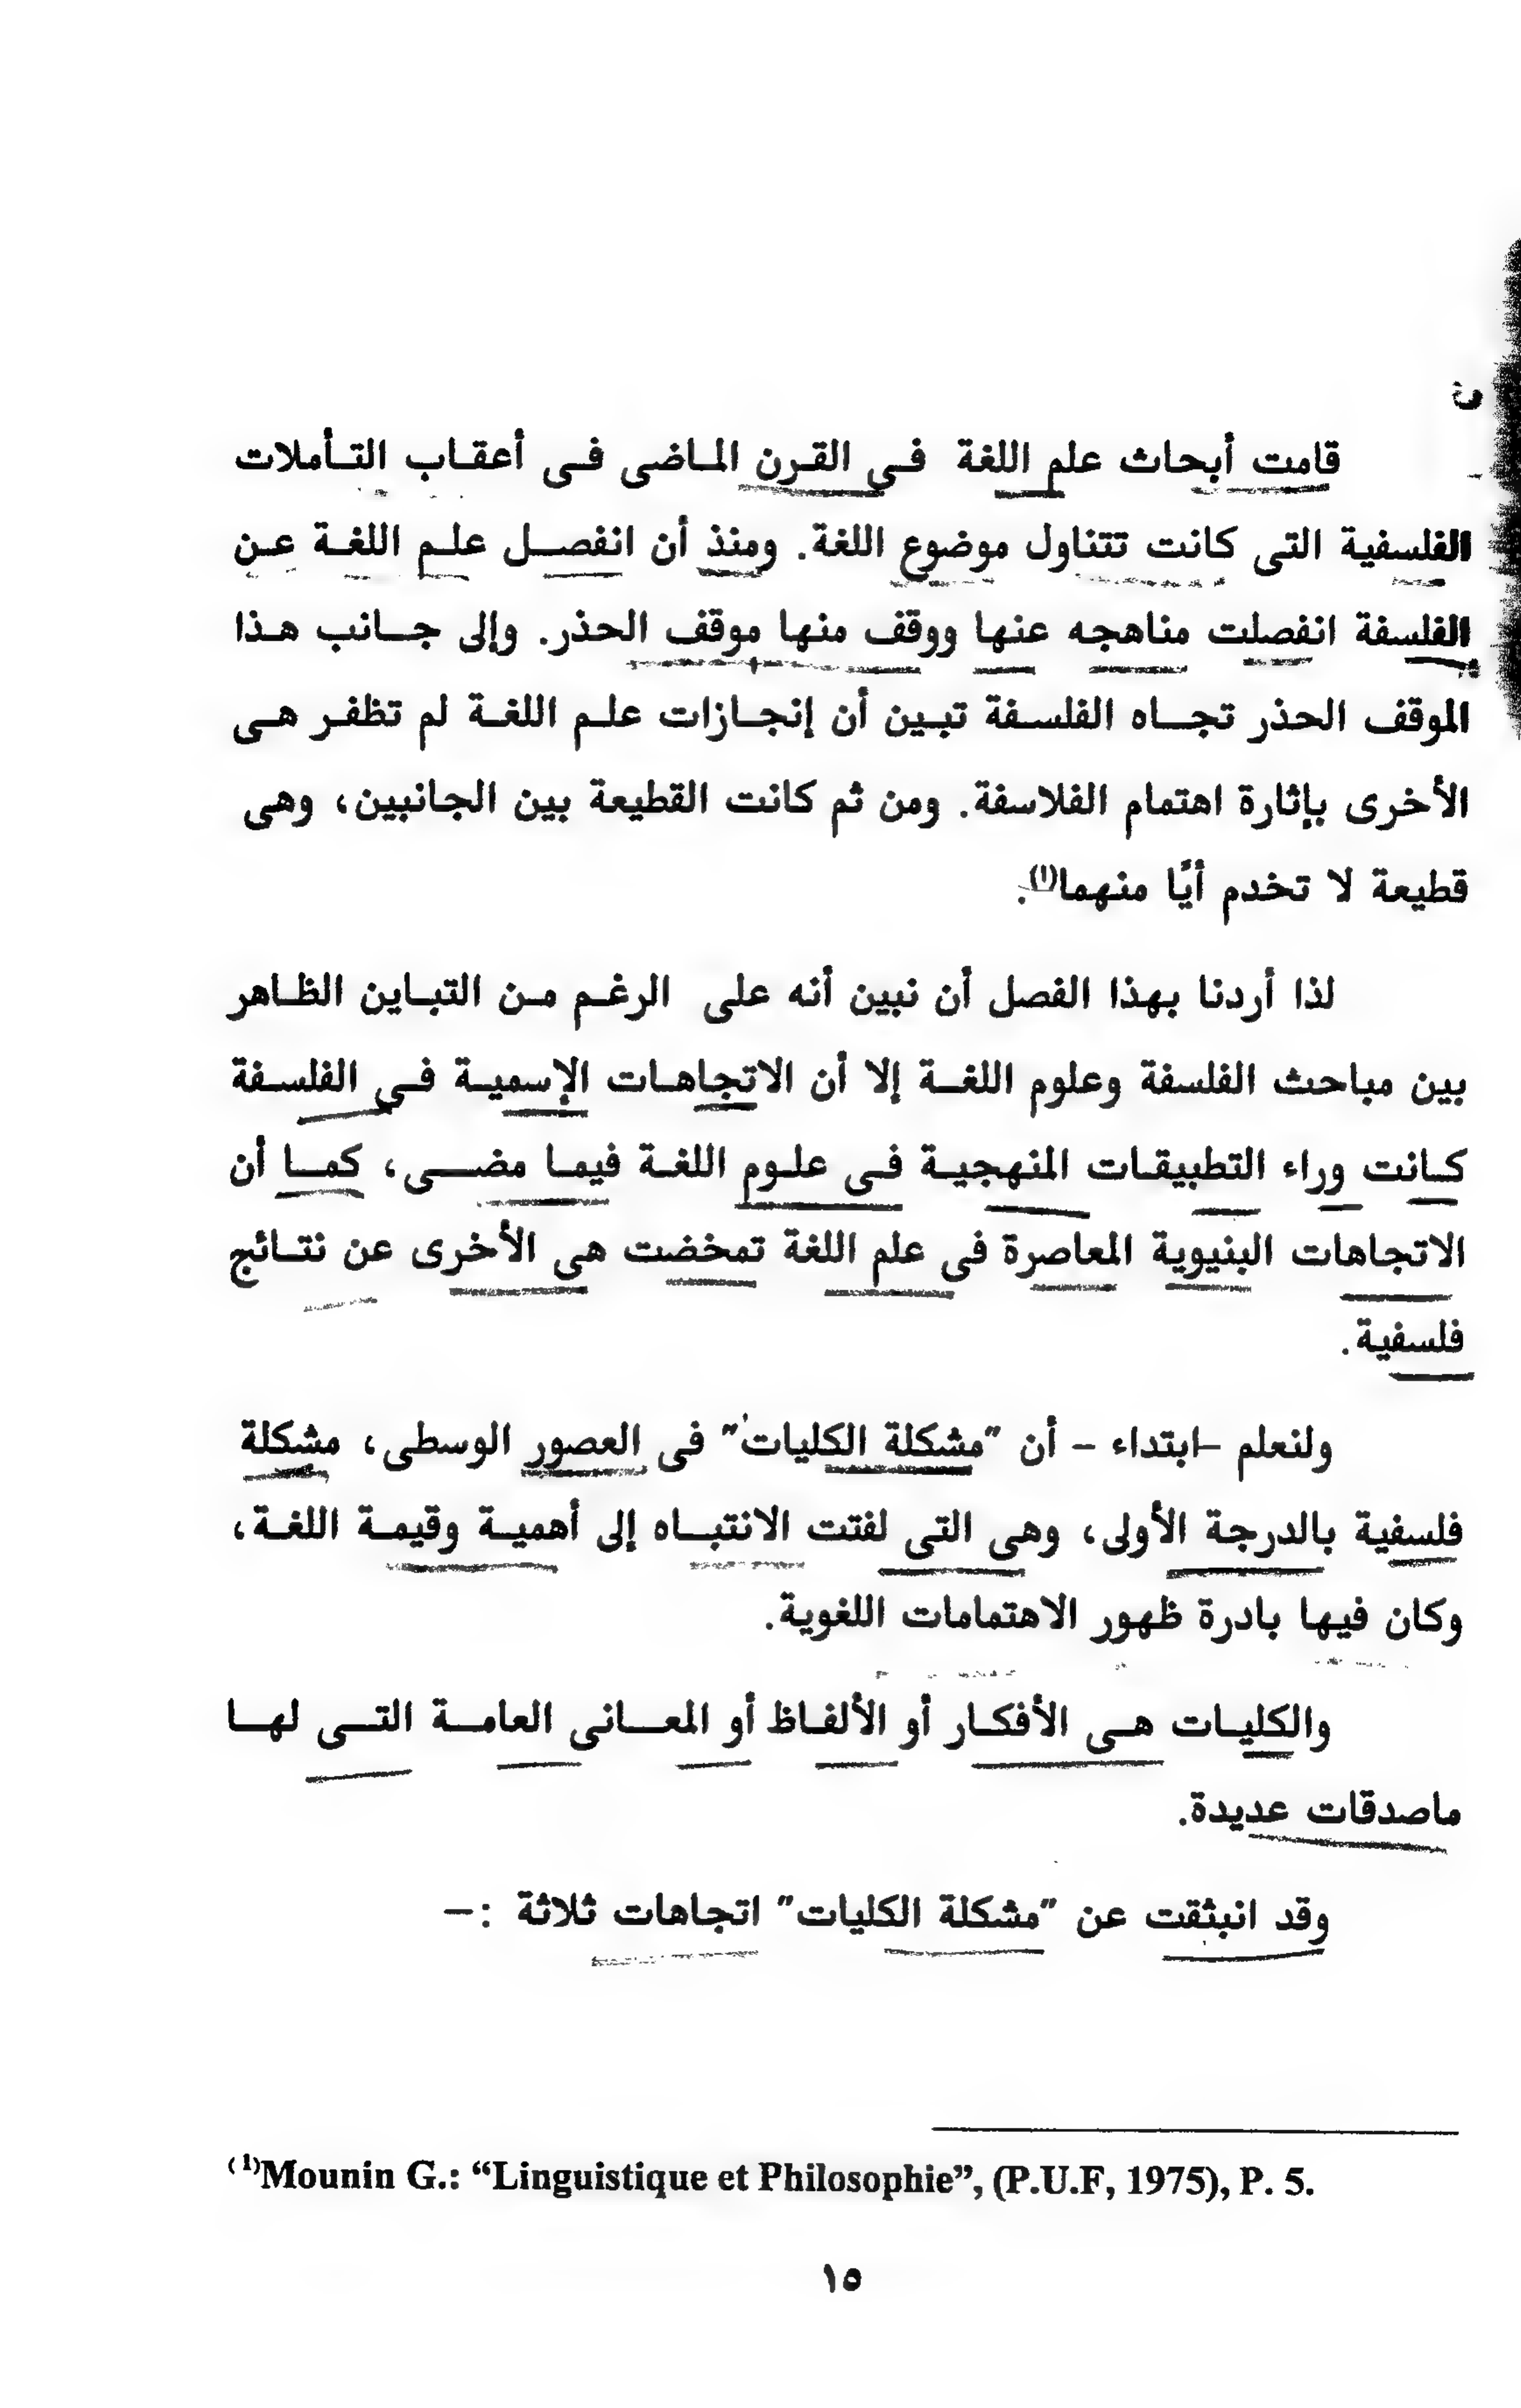 قامت أبحاث علم اللغة في القرن الماضى فى أعقاب التأملات
الفلسفية التى كانت تتناول موضوع اللغة. ومنذ أن انفصل علم اللغة عن
الفلسفة انفصلت مناهجه عنها ووقف منها موقف الحذر. وإلى جانب هذا
الموقف الحذر تجاه الفلسفة تبين أن إنجازات علم اللغة لم تظفر هى
الأخرى بإثارة اهتمام الفلاسفة. ومن ثم كانت القطيعة بين الجانبين، وهى
قطيعة لا تخدم أيًا منهما(١).
لذا أردنا بهذا الفصل أن نبين أنه على الرغم من التباين الظاهر
بين مباحث الفلسفة وعلوم اللغة إلا أن الاتجاهات الإسمية في الفلسفة
كانت وراء التطبيقات المنهجية فى علوم اللغة فيما مضى، كما أن
الاتجاهات البنيوية المعاصرة فى علم اللغة تمخضت هى الأخرى عن نتائج
فلسفية.
ولنعلم -ابتداء - أن "مشكلة الكليات" فى العصور الوسطى، مشكلة
فلسفية بالدرجة الأولى، وهى التى لفتت الانتباه إلى أهمية وقيمة اللغة،
وكان فيها بادرة ظهور الاهتمامات اللغوية.
والكليات هى الأفكار أو الألفاظ أو المعانى العامة التى لها
ماصدقات عديدة.
وقد انبثقت عن "مشكلة الكليات" اتجاهات ثلاثة :-
(1)Mounin G.: “Linguistique et Philosophie”, (P.U.F, 1975), P. 5.
١٥